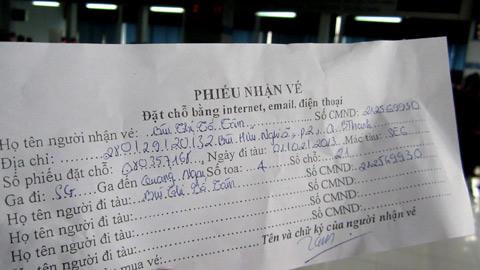 PHIẾU NHẬN VÉ
Đặt chỗ bằng internet, email, điện thoại
Họ tên người nhận vé: Bùi Thị Tố Tâm Số CMND: 212569930
Địa chỉ: Bùi Hữu Nghĩa, P2, Q. B Thạnh
Số phiếu đặt chỗ: Ngày đi tàu: Mác tàu: SE6
Ga đi: SG Ga đến Quang Ngai Số toa: 4 Số chỗ: 21
Họ tên người đi tàu: Bùi Thị Tố Tâm Số CMND: 212569930
Họ tên người đi tàu: Số CMND:
Họ tên người đi tàu: Số CMND:
Họ tên người đi tàu: Số CMND:
mua vé: Tên và chữ ký của người nhận vé